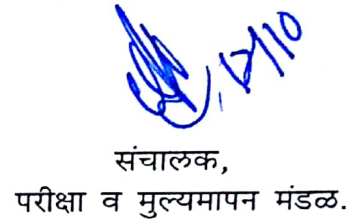 १७/१०
संचालक,
परीक्षा व मुल्यमापन मंडळ.